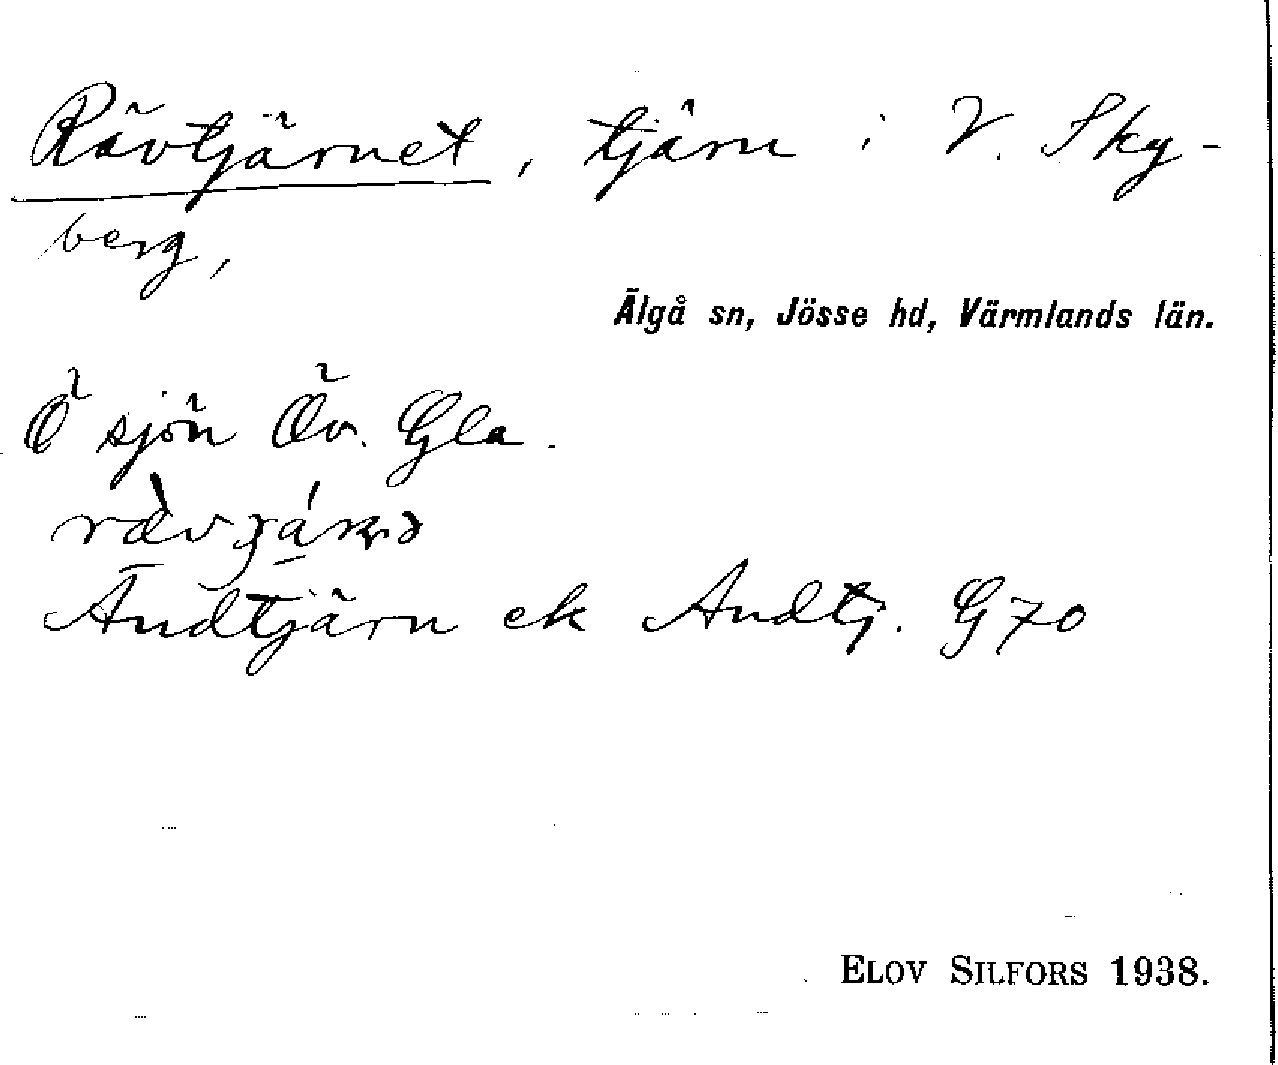 Rävtjärnet, tjärn i V. Sky-
berg,
Älgå sn, Jösse hd, Värmlands län.
Ö sjön Öv. Gla.
Andtjärn ek Andtj. G70
ELOV SILFORS 1938.